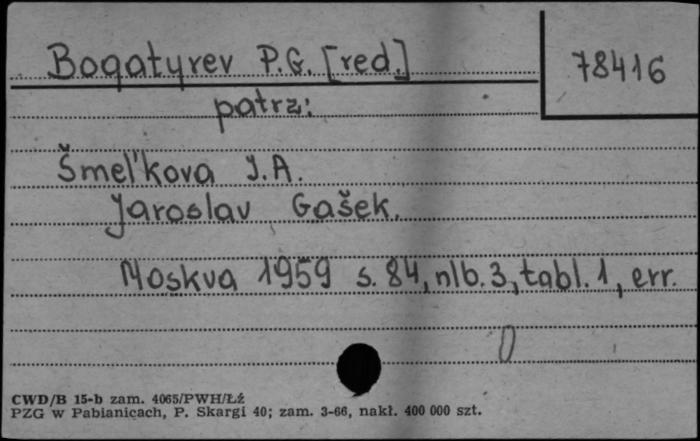 Bogatyrev P.G. [red.]
78416
patrz:
Šmel'kova I.A.
Jaroslav Gašek.
Moskva 1959 s. 84, nlb. 3, tabl. 1, err.
CWD/B 15-b zam. 4065/PWH/Łź
PZG w Pabianicach, P. Skargi 40; zam. 3-66, nakł. 400 000 szt.